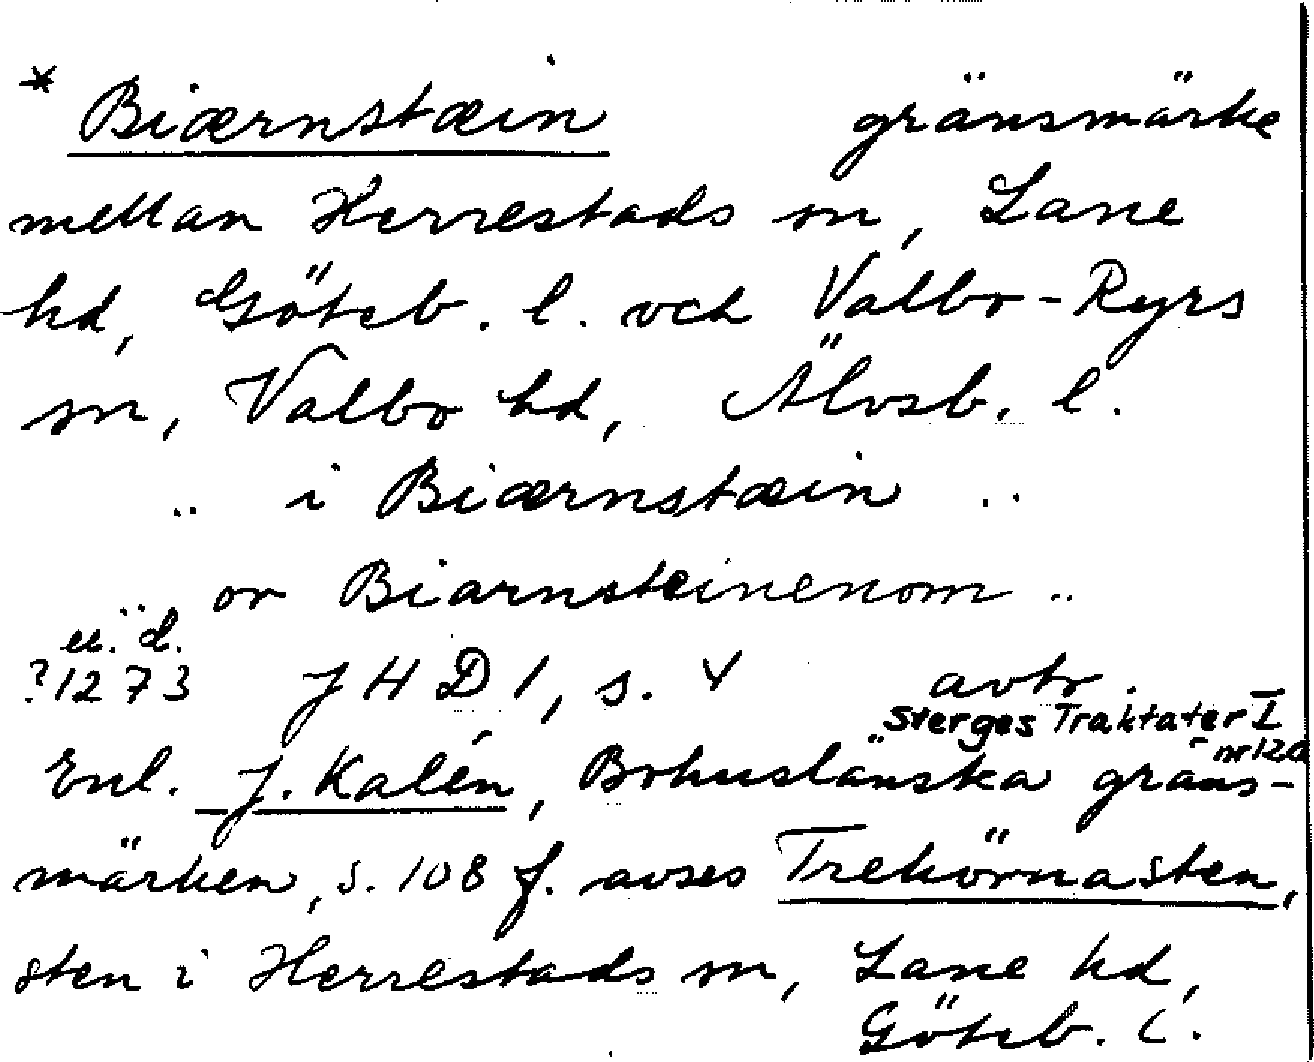 * Biærnstæin gränsmärke
mellan Herrestads sn, Lane
hd, Göteb. l. och Valbo-Ryrs
sn, Valbo hd, Älvsb. l.
.. i Biærnstæin ..
... or Biarnsteinenom ..
u. d.
?1273 JHD 1, s. 4 avtr.
Sverges Traktater I
nr 120
Enl. J. Kalén, Bohuslänska gräns-
märken, s. 108 f. avses Trehörnasten,
sten i Herrestads sn, Lane hd,
Göteb. l.